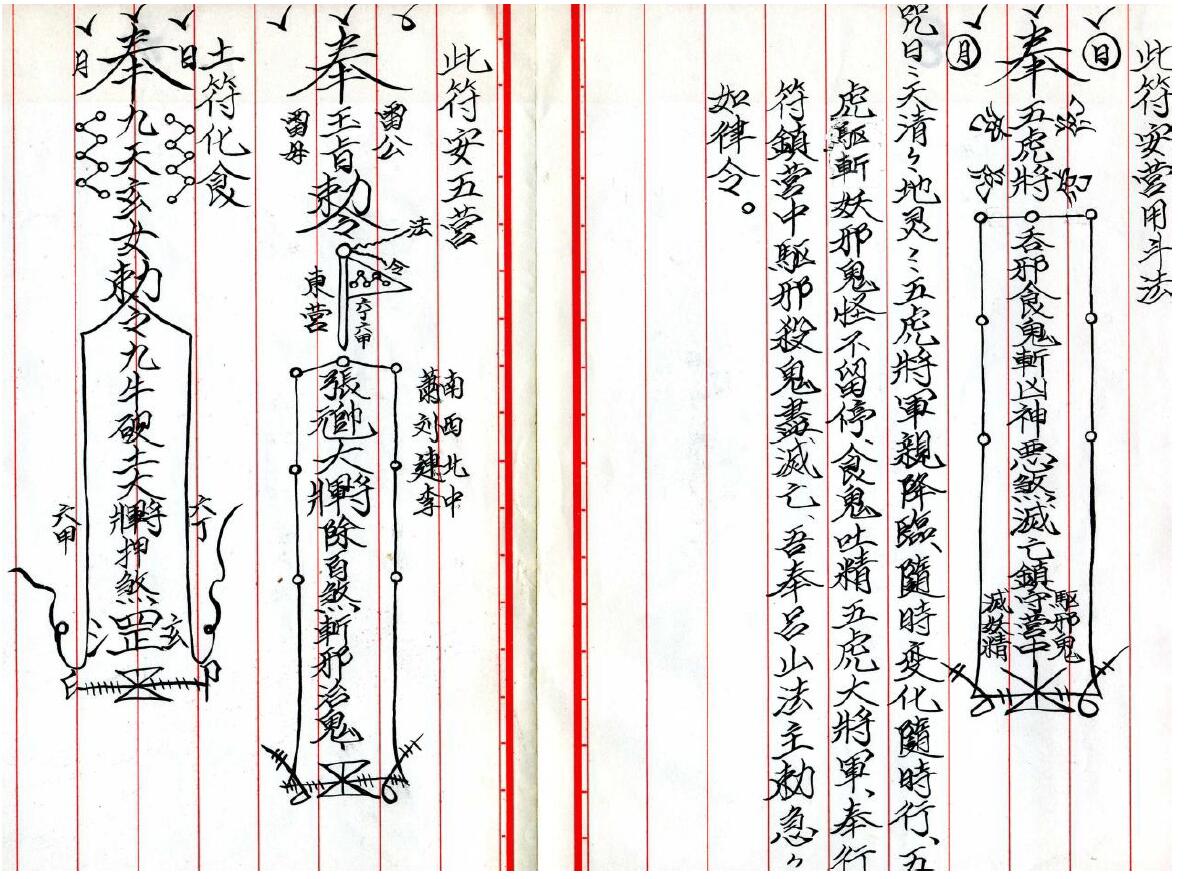 此符安营用斗法
日
奉五虎將吞邪食鬼斬凶神悪煞滅亡鎮守营中
月
驅邪鬼
滅妖精
咒曰ミ天清々地灵ミ五虎將軍親降臨、隨時变化隨時行、五
虎驅斬妖邪鬼怪不留停、食鬼吐精五虎大將軍、奉行
符鎮营中駆邪殺鬼盡滅亡、吾奉吕山法主勅急々
如律令。
此符安五营
南西北中
蕭刘連李
雷公
奉玉旨勅令
雷母
法
令
六丁六甲
東营
張大將軍除百煞斬邪治鬼
土符化食
日
奉九天玄女勅令九牛破土大將軍押煞罡
月
六丁
六甲
玄